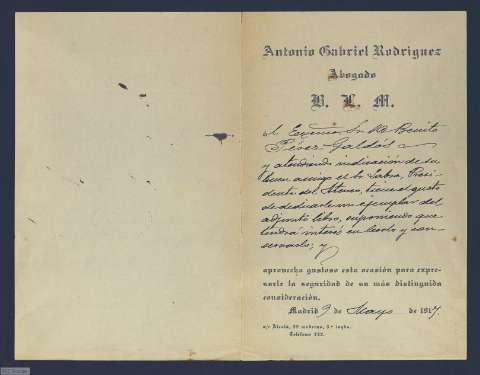 Antonio Gabriel Rodriguez
Abogado
B. L. M.
al Excmo Sr D. Benito
Pérez Galdós
y atendiendo indicación de su
buen amigo el Sr Labra, Presi-
dente del Ateneo, tiene el gusto
de dedicarle un ejemplar del
adjunto libro, suponiendo que
tendrá interés en leerlo y con-
servarlo; y
aprovecha gustoso esta ocasión para expre-
sarle la seguridad de su más distinguida
consideración.
Madrid 9 de Mayo de 1917.
s/c Alcalá, 99 moderno, 3.º izqda.
Teléfono